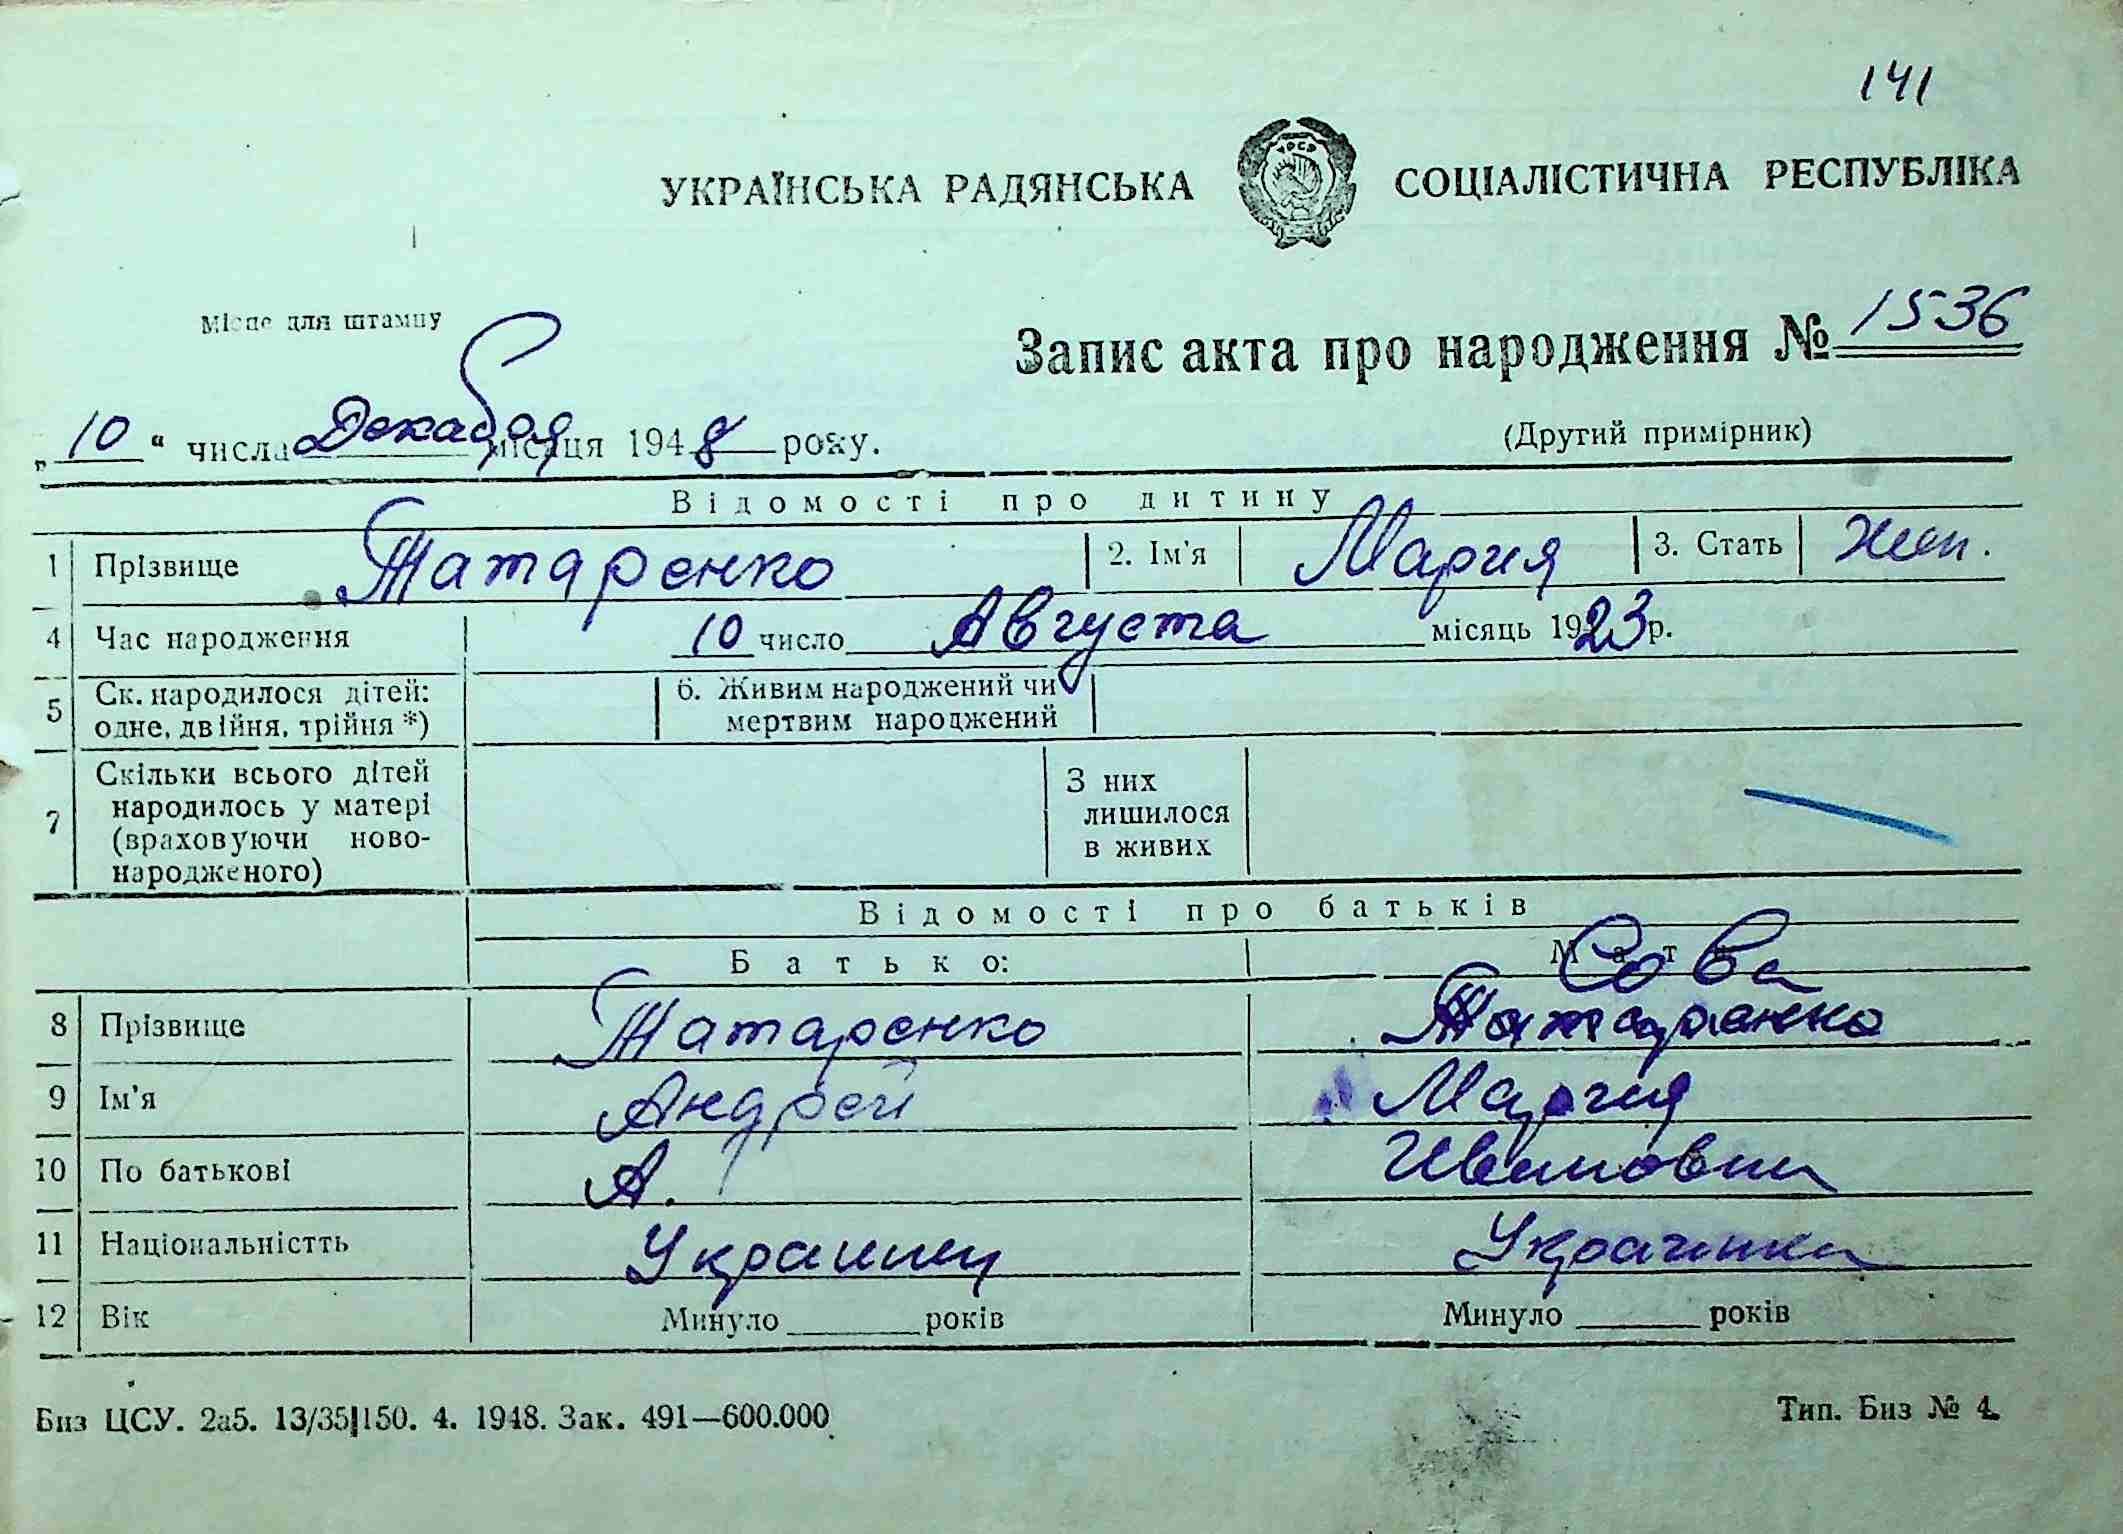 141
УКРАЇНСЬКА РАДЯНСЬКА СОЦІАЛІСТИЧНА РЕСПУБЛІКА
УРСР
Місце для штампу
Запис акта про народження № 1536
„10“ числа Декабря місяця 1948 року.
(Другий примірник)
Відомості про дитину
1 Прізвище Татаренко 2. Ім'я Мария 3. Стать жен.
4 Час народження 10 число Августа місяць 1923 р.
5 Ск. народилося дітей: 6. Живим народжений чи
одне, двійня, трійня *) мертвим народжений
7 Скільки всього дітей З них
народилось у матері лишилося
(враховуючи ново- в живих
народженого)
Відомості про батьків
Батько: Мат
Сова
8 Прізвище Татаренко Татаренко
9 Ім'я Андрей Мария
10 По батькові А. Ивановна
11 Національністть Украинец Украинка
12 Вік Минуло ______ років Минуло ______ років
Биз ЦСУ. 2а5. 13/35|150. 4. 1948. Зак. 491—600.000
Тип. Биз № 4.